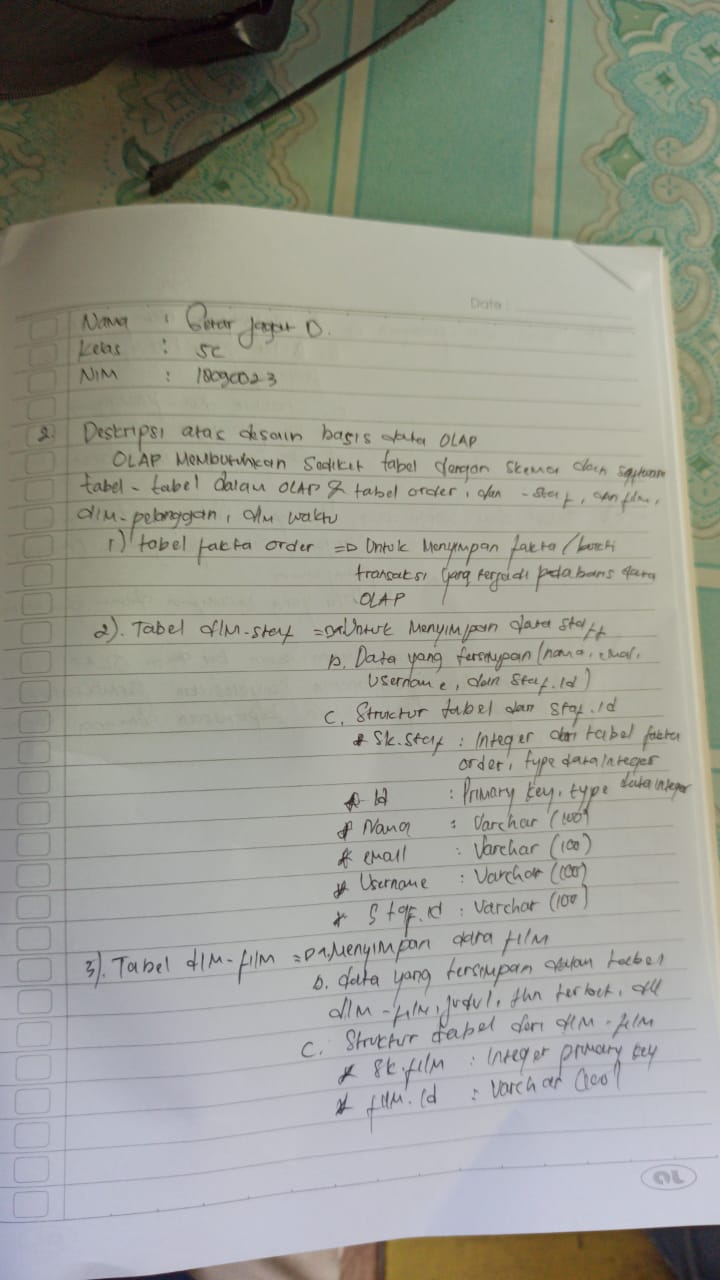 Date
Nama : Getar Jagat D.
Kelas : 5C
NIM : 18090023
2. Deskripsi atas desain basis data OLAP
OLAP Membutuhkan Sedikit tabel dengan skema dan
tabel-tabel dalam OLAP tabel order, dan -staf, film,
dim-pelanggan, dim waktu
1) tabel fakta order => Untuk Menyimpan fakta / bukti
transaksi yang terjadi pada basis data
OLAP
2). Tabel dIM-staf => a. Untuk Menyimpan data staff
b. Data yang tersimpan (nama, email,
Username, dan Staf.Id)
C. Structur tabel dan Staf.id
* Sk.staf : Integer dari tabel fakta
order, type data Integer
* Id : Primary key, type data integer
* Nama : Varchar (100)
* email : Varchar (100)
* Username : Varchar (100)
* Staf.id : Varchar (100)
3). Tabel dIM-fIlM => a. Menyimpan data fIlM
b. data yang tersimpan dalam
dIM-fIlM, judul, thn terbit, dll
C. Struktur tabel dari dIM-fIlM
* Sk.fIlM : Integer primary key
* fIlM.id : Varchar (100)